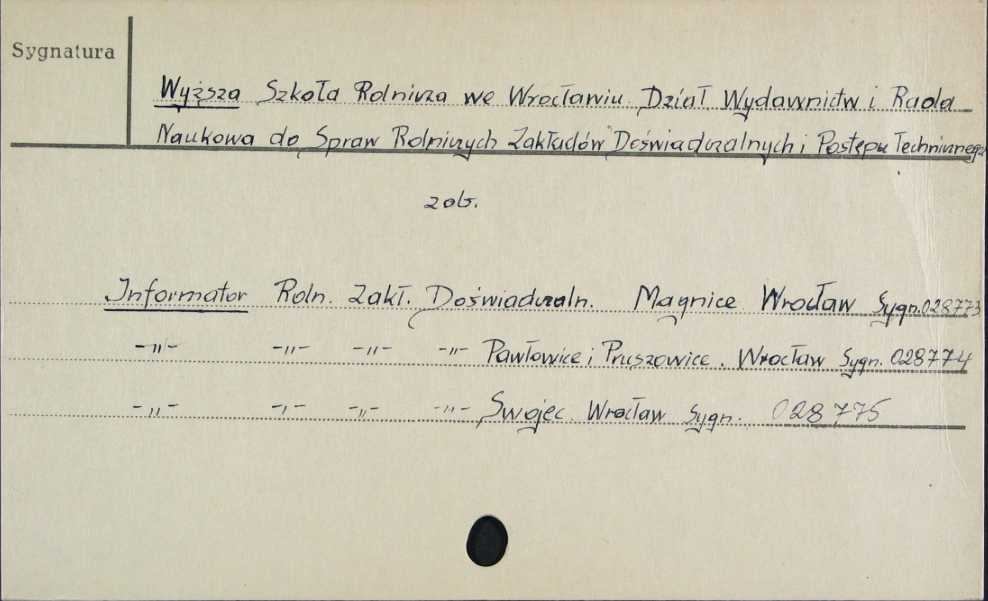 Sygnatura
Wyższa Szkoła Rolnicza we Wrocławiu. Dział Wydawnictw i Rada
Naukowa do Spraw Rolniczych Zakładów Doświadczalnych i Postępu Technicznego
zob.
Informator Roln. Zakł. Doświadczaln. Magnice Wrocław Sygn. 028773
-"- -"- -"- -"- Pawłowice i Pruszowice. Wrocław Sygn. 028774
-"- -"- -"- -"- Swojec. Wrocław Sygn. 028775